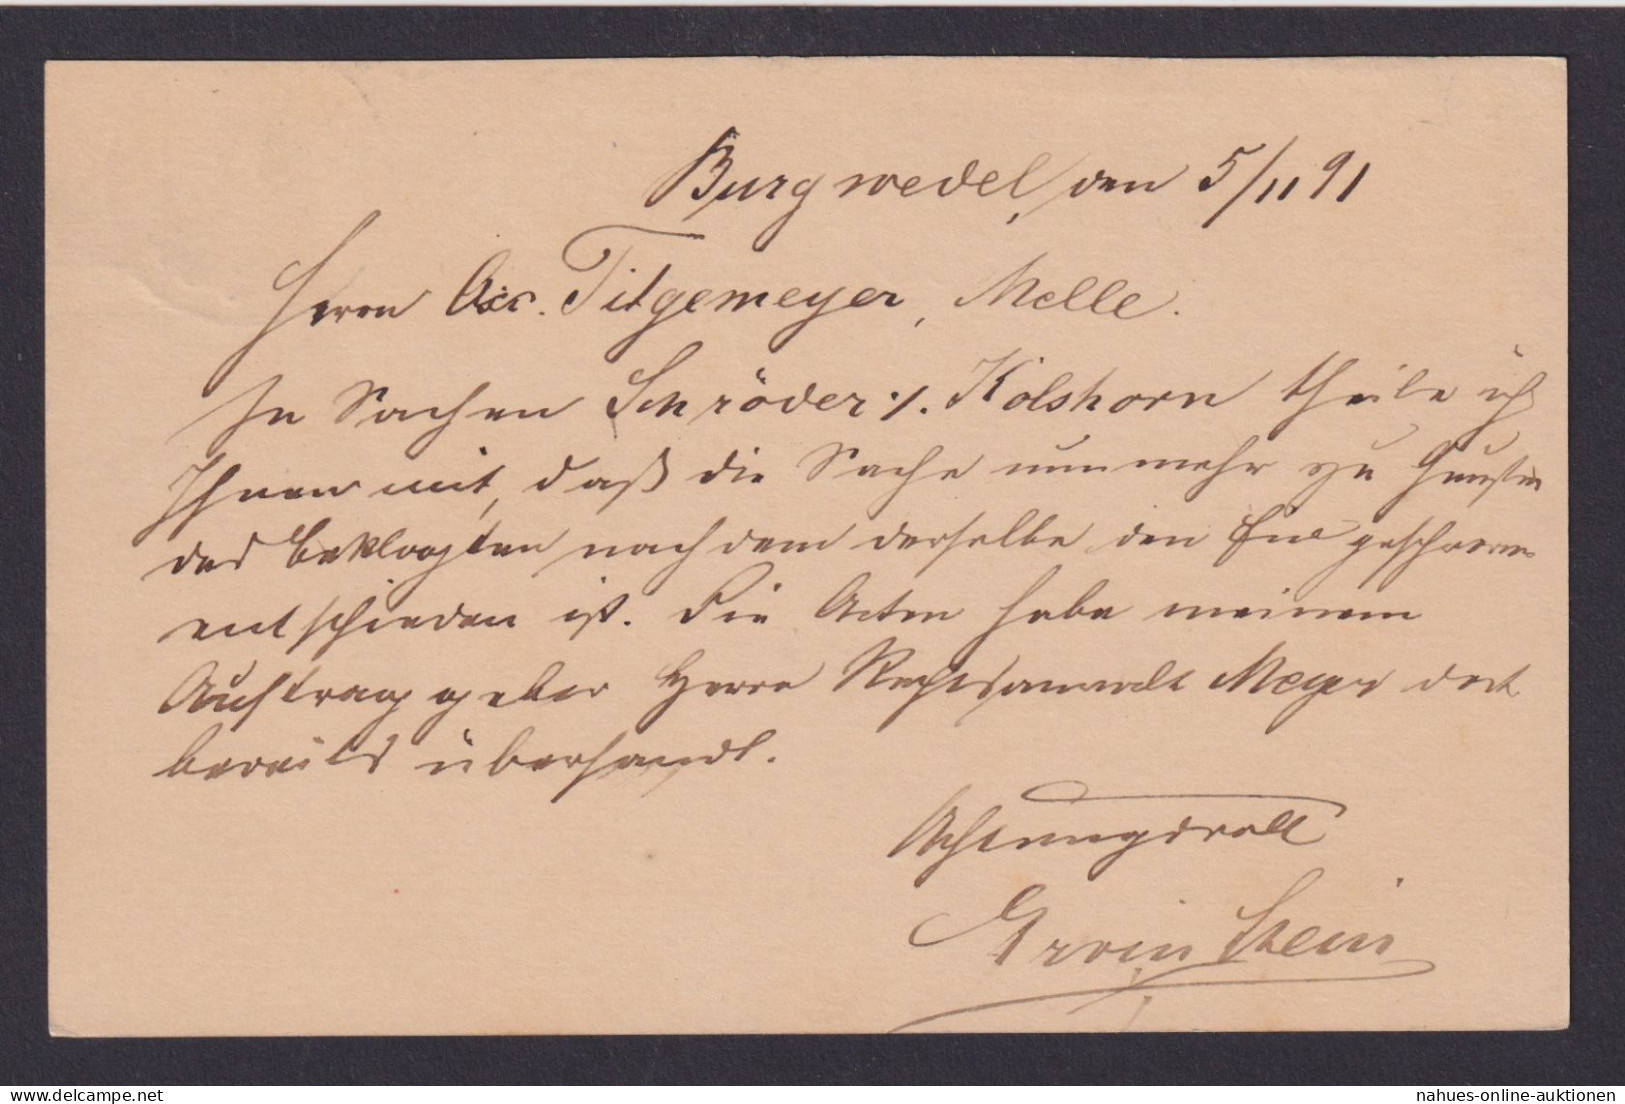 Burgwedel, den 5/11 91
Herrn Titgemeyer, Melle.
In Sachen Schröder ./. Kolshorn theile ich
Ihnen mit, daß die Sache nunmehr zu Gunsten
des Beklagten nachdem derselbe den Eid geschworen
entschieden ist. Die Acten habe meinem
Auftraggeber Herrn Rechtsanwalt Meyer dort
bereits übersandt.
Achtungsvoll
Erwin Stein
nahues-online-auktionen